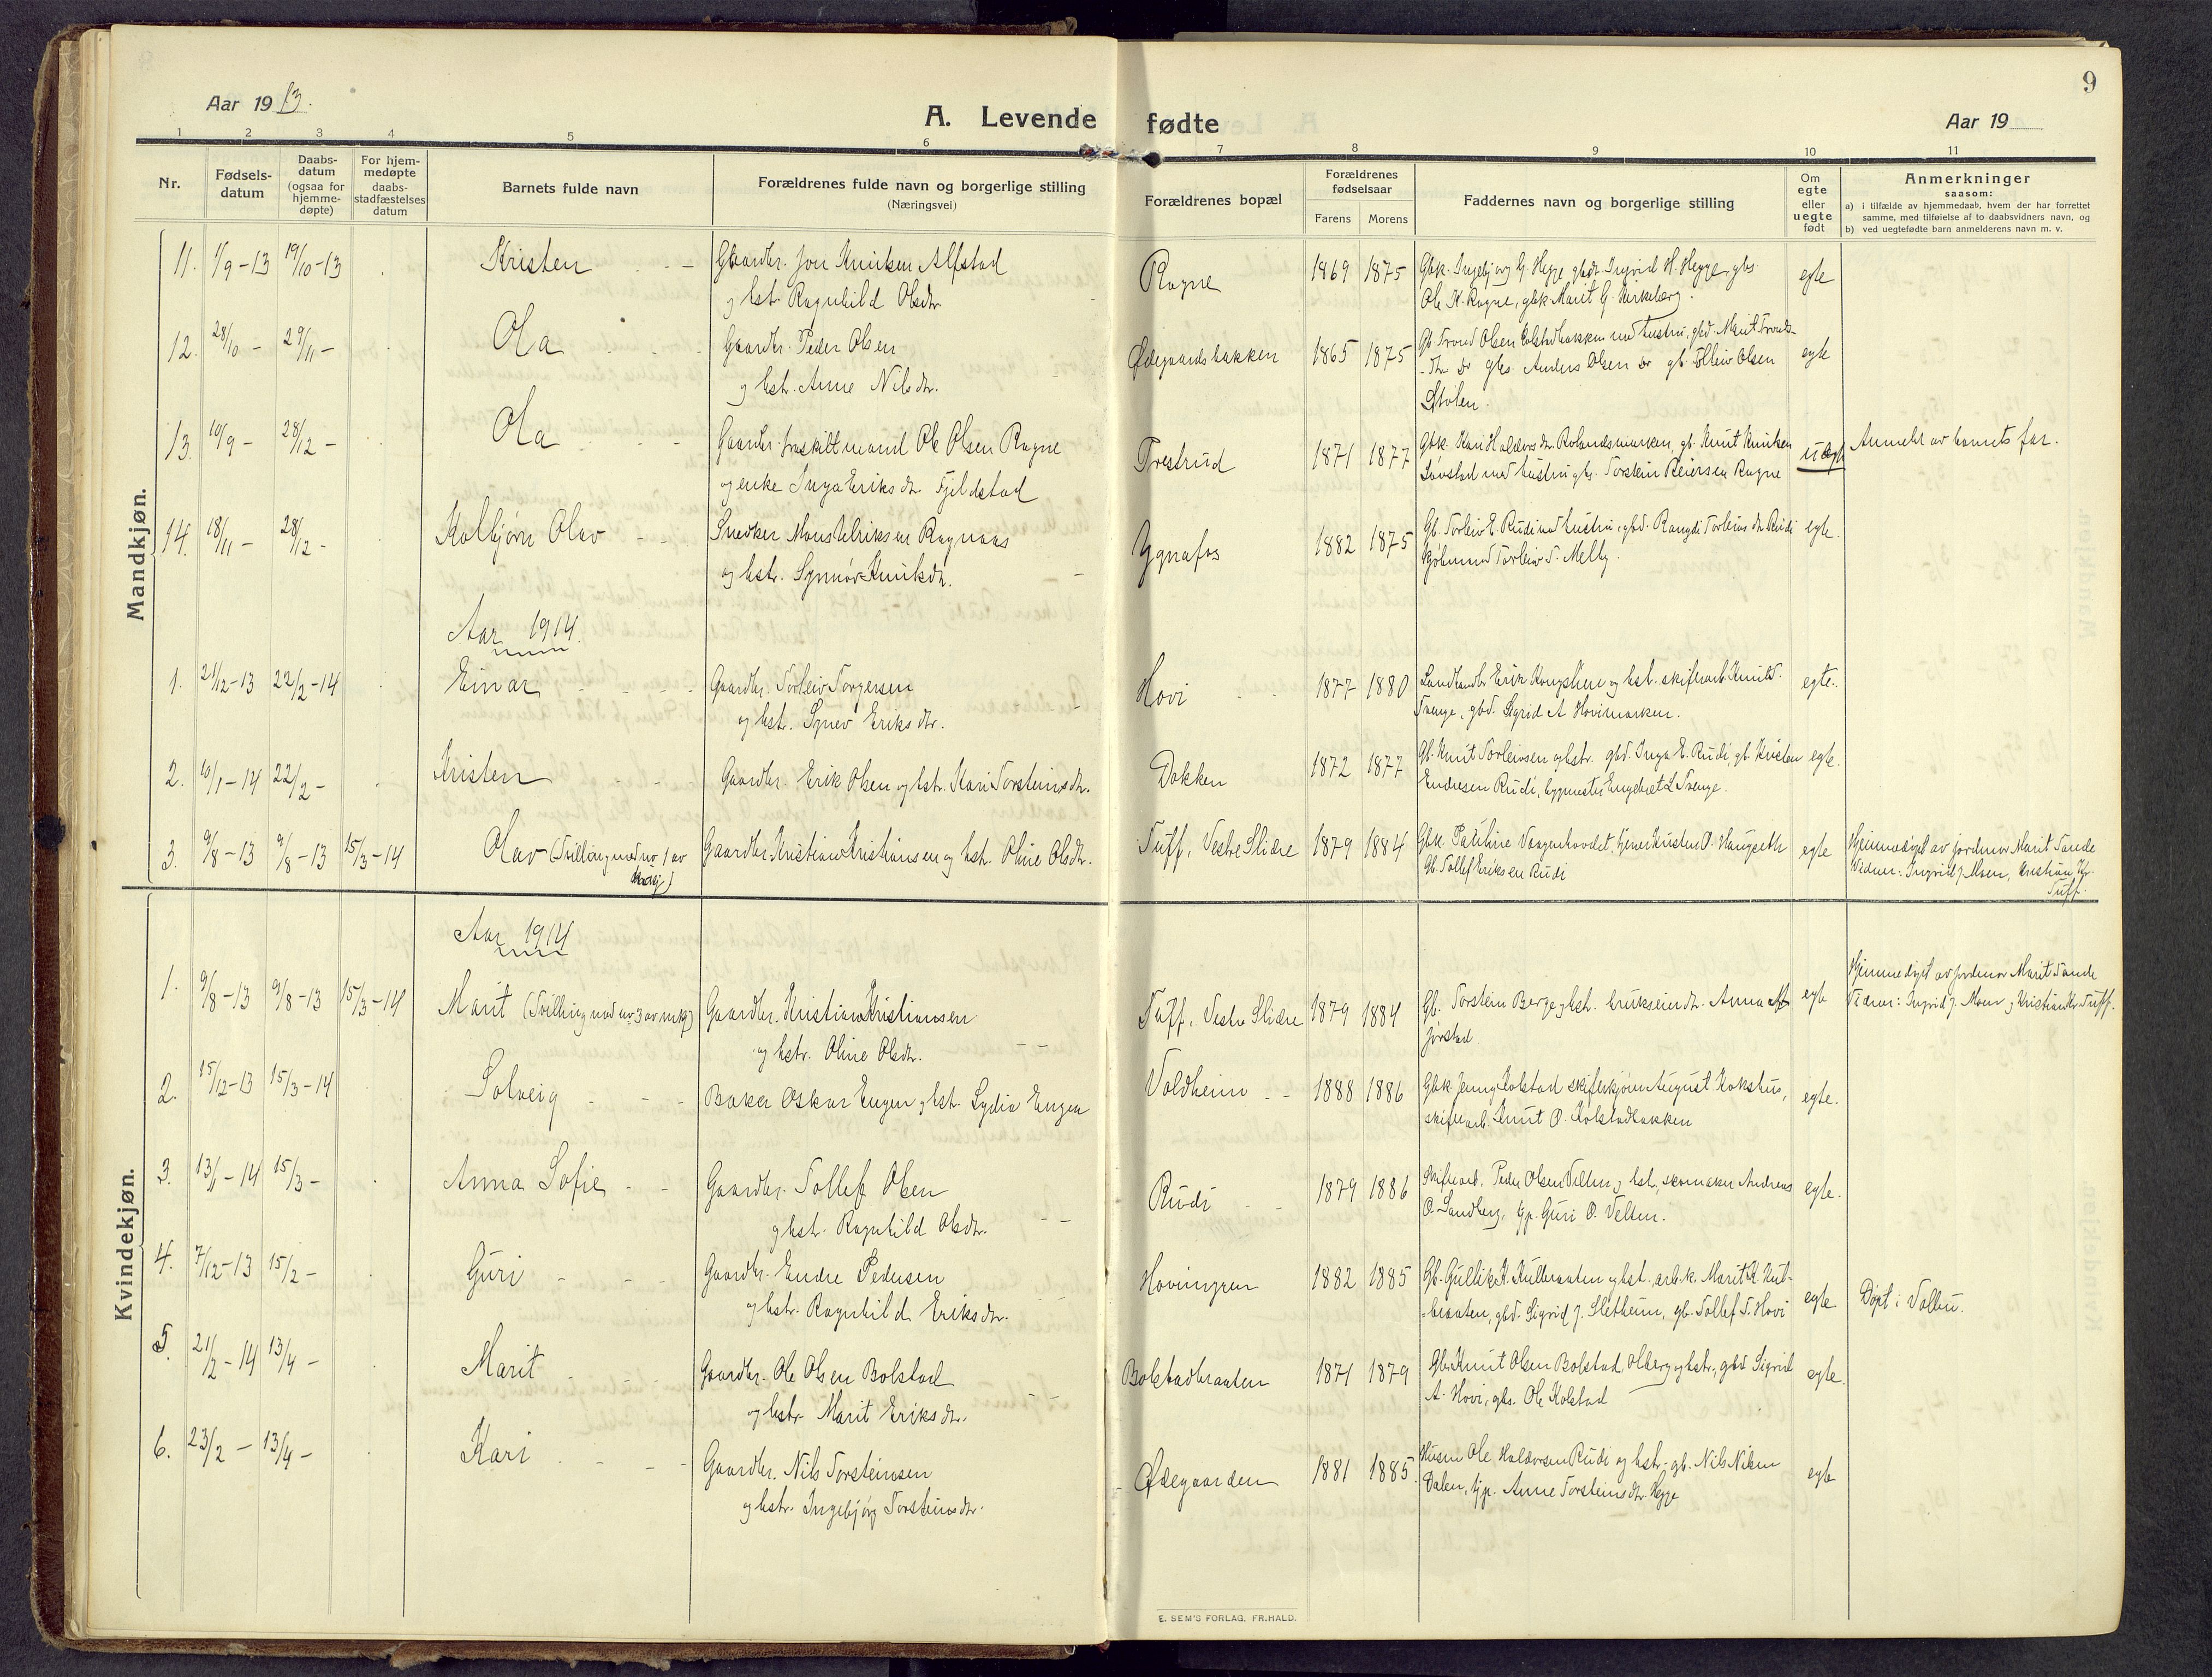 9
Aar 1913.
A. Levende fødte
Aar 19
1 2 3 4 5 6 7 8 9 10 11
Nr.
Fødsels-
datum
Daabs-
datum
(ogsaa for
hjemme-
døpte)
For hjem-
medøpte
daabs-
stadfæstelses
datum
Barnets fulde navn
Forældrenes fulde navn og borgerlige stilling
(Næringsvei)
Forældrenes bopæl
Forældrenes
fødselsaar
Farens Morens
Faddernes navn og borgerlige stilling
Om
egte
eller
uegte
født
Anmerkninger
saasom:
a) i tilfælde av hjemmedaab, hvem der har forrettet
samme, med tilføielse af to daabsvidners navn, og
b) ved uegtefødte barn anmelderens navn m. v.
Mandkjøn.
11. 1/9-13 19/10-13 Kristen Gaardbr. Jon Knutsen Alfstad Rogne 1869 1875 Gbk. Ingebjørg G. Hegge, gbdt. Ingrid H. Hegge, gbs egte
og hstr. Ragnhild Olsdtr. Ole K. Rogne, gbk Marit G. Kirkeberg.
12. 28/10 - 29/11 - Ola Gaardbr. Peder Olsen Ødegaardsbakken 1865 1875 Gb. Trond Olsen Kolstadbakken med hustru, gbd. Marit Tronds- egte
og hstr. Anne Nilsdtr. gbs. Anders Olsen gb. Olsen
Stølen.
13. 10/9 - 28/12 - Ola Gaardbr. fraskilt mand Ole Olsen Rogne Trestrud 1871 1877 Gbk. Kari Halvorsdtr. Rolandsmarken, gb. Knut Knutsen uegte Anmeldt av barnets far.
og enke Inga Eriksdtr. Fjeldstad Løvstad med hustru, gbs. Torstein Reiersen Rogne
14. 18/11 - 28/12 - Kolbjørn Olav Snedker Mons Ulriksen Rognaas Ygnafos 1882 1875 Gb. Torleiv E. Rudi med hustru, gbd. Rangdi Torleivsdtr. Rudi egte.
og hstr. Synnøv Knutsdtr. Kjøbmand Torleiv T. Melby.
Aar 1914.
1. 21/12-13 22/2-14 Einar Gaardbr. Torleiv Torgersen Hovi 1877 1880 Landhandler Erik Kongslien og hst. skiferarb. Knut T. egte.
og hst. Synøv Eriksdtr. Trenge, gbd. Sigrid A Hovimarken.
2. 10/1-14 22/2 - Kristen Gaardbr. Erik Olsen og hst. Kari Torsteinsdtr. Dokken 1872 1877 Gb. Knut Torleivsen og hstr. gbd. Inga E. Rudi, gb. Kristen egte.
Endresen Rudi, bygmester Engebret L Trenge.
3. 9/8-13 9/8-13 15/3-14 Olav (Tvilling med nr. 1 av Gaardbr. Kristian Kristiansen og hst. Oline Olsdtr. Tuff, Vestre Slidre 1879 1884 Gbk. Pauline Vangenhovdet, tjener Kristen O. Haugseth egte Hjemmedøpt av jordmor Marit Tande
Gb. Tollef Eriksen Rudi Vidner: Ingrid J. Moen, Kristian Kr.
Tuff.
Kvindekjøn.
Aar 1914
1. 9/8-13 9/8-13 15/3-14 Marit (Tvilling med nr 3 av mkj) Gaardbr. Kristian Kristiansen Tuff, Vestre Slidre 1879 1884 Gb. Torstein Berge og hst. Anna egte Hjemmedøpt av jordmor Marit Tande
og hstr. Oline Olsdtr. Jørstad Vidner: Ingrid J. Moen og Kristian Kr. Tuff.
2. 15/12-13 15/3-14 Solveig Baker Oskar Engen og hst. Lydia Engen Voldheim 1888 1886 Gbk. Jenny Kolstad skiferkjører August Kokshus, egte.
skiferarb. Knut O. Kolstadbakken
3. 13/1-14 15/3 - Anna Sofie Gaardbr. Tollef Olsen Rudi 1879 1886 Skiferarb. Peder Olsen Velten og hst., skomaker Andreas egte.
og hst. Ragnhild Olsdtr. O. Sandberg, tjp. Guri O. Velten.
4. 7/12-13 15/2 - Guri Gaardbr. Endre Pedersen Hovimgren 1882 1885 Gb. Gullik K. Kulbraaten og hst., arb.k. Marit K. Kul- egte Døpt i Volbu.
og hstr. Ragnhild Eriksdtr. -braaten, gbd. Sigrid J. Sletheim, gb. Tollef T. Hovi
5. 21/2-14 13/4 - Marit Gaardbr. Ole Olsen Bolstad Bolstadbraaten 1871 1879 Gb. Knut Olsen Bolstad Olberg og hstr., gbd Sigrid egte.
og hstr. Marit Eriksdtr. A. Hovi, gbs. Ole Kolstad
6. 23/2 - 13/4 - Kari Gaardbr. Nils Torsteinsen Ødegaarden 1881 1885 Husm Ole Halvorsen Rudi og hst., gb. Nils Nilsen egte
og hstr. Ingebjørg Torsteinsdtr. Dalen, tjp. Anne Torsteinsdtr. Hegge
E. SEM'S FORLAG, FR.HALD.